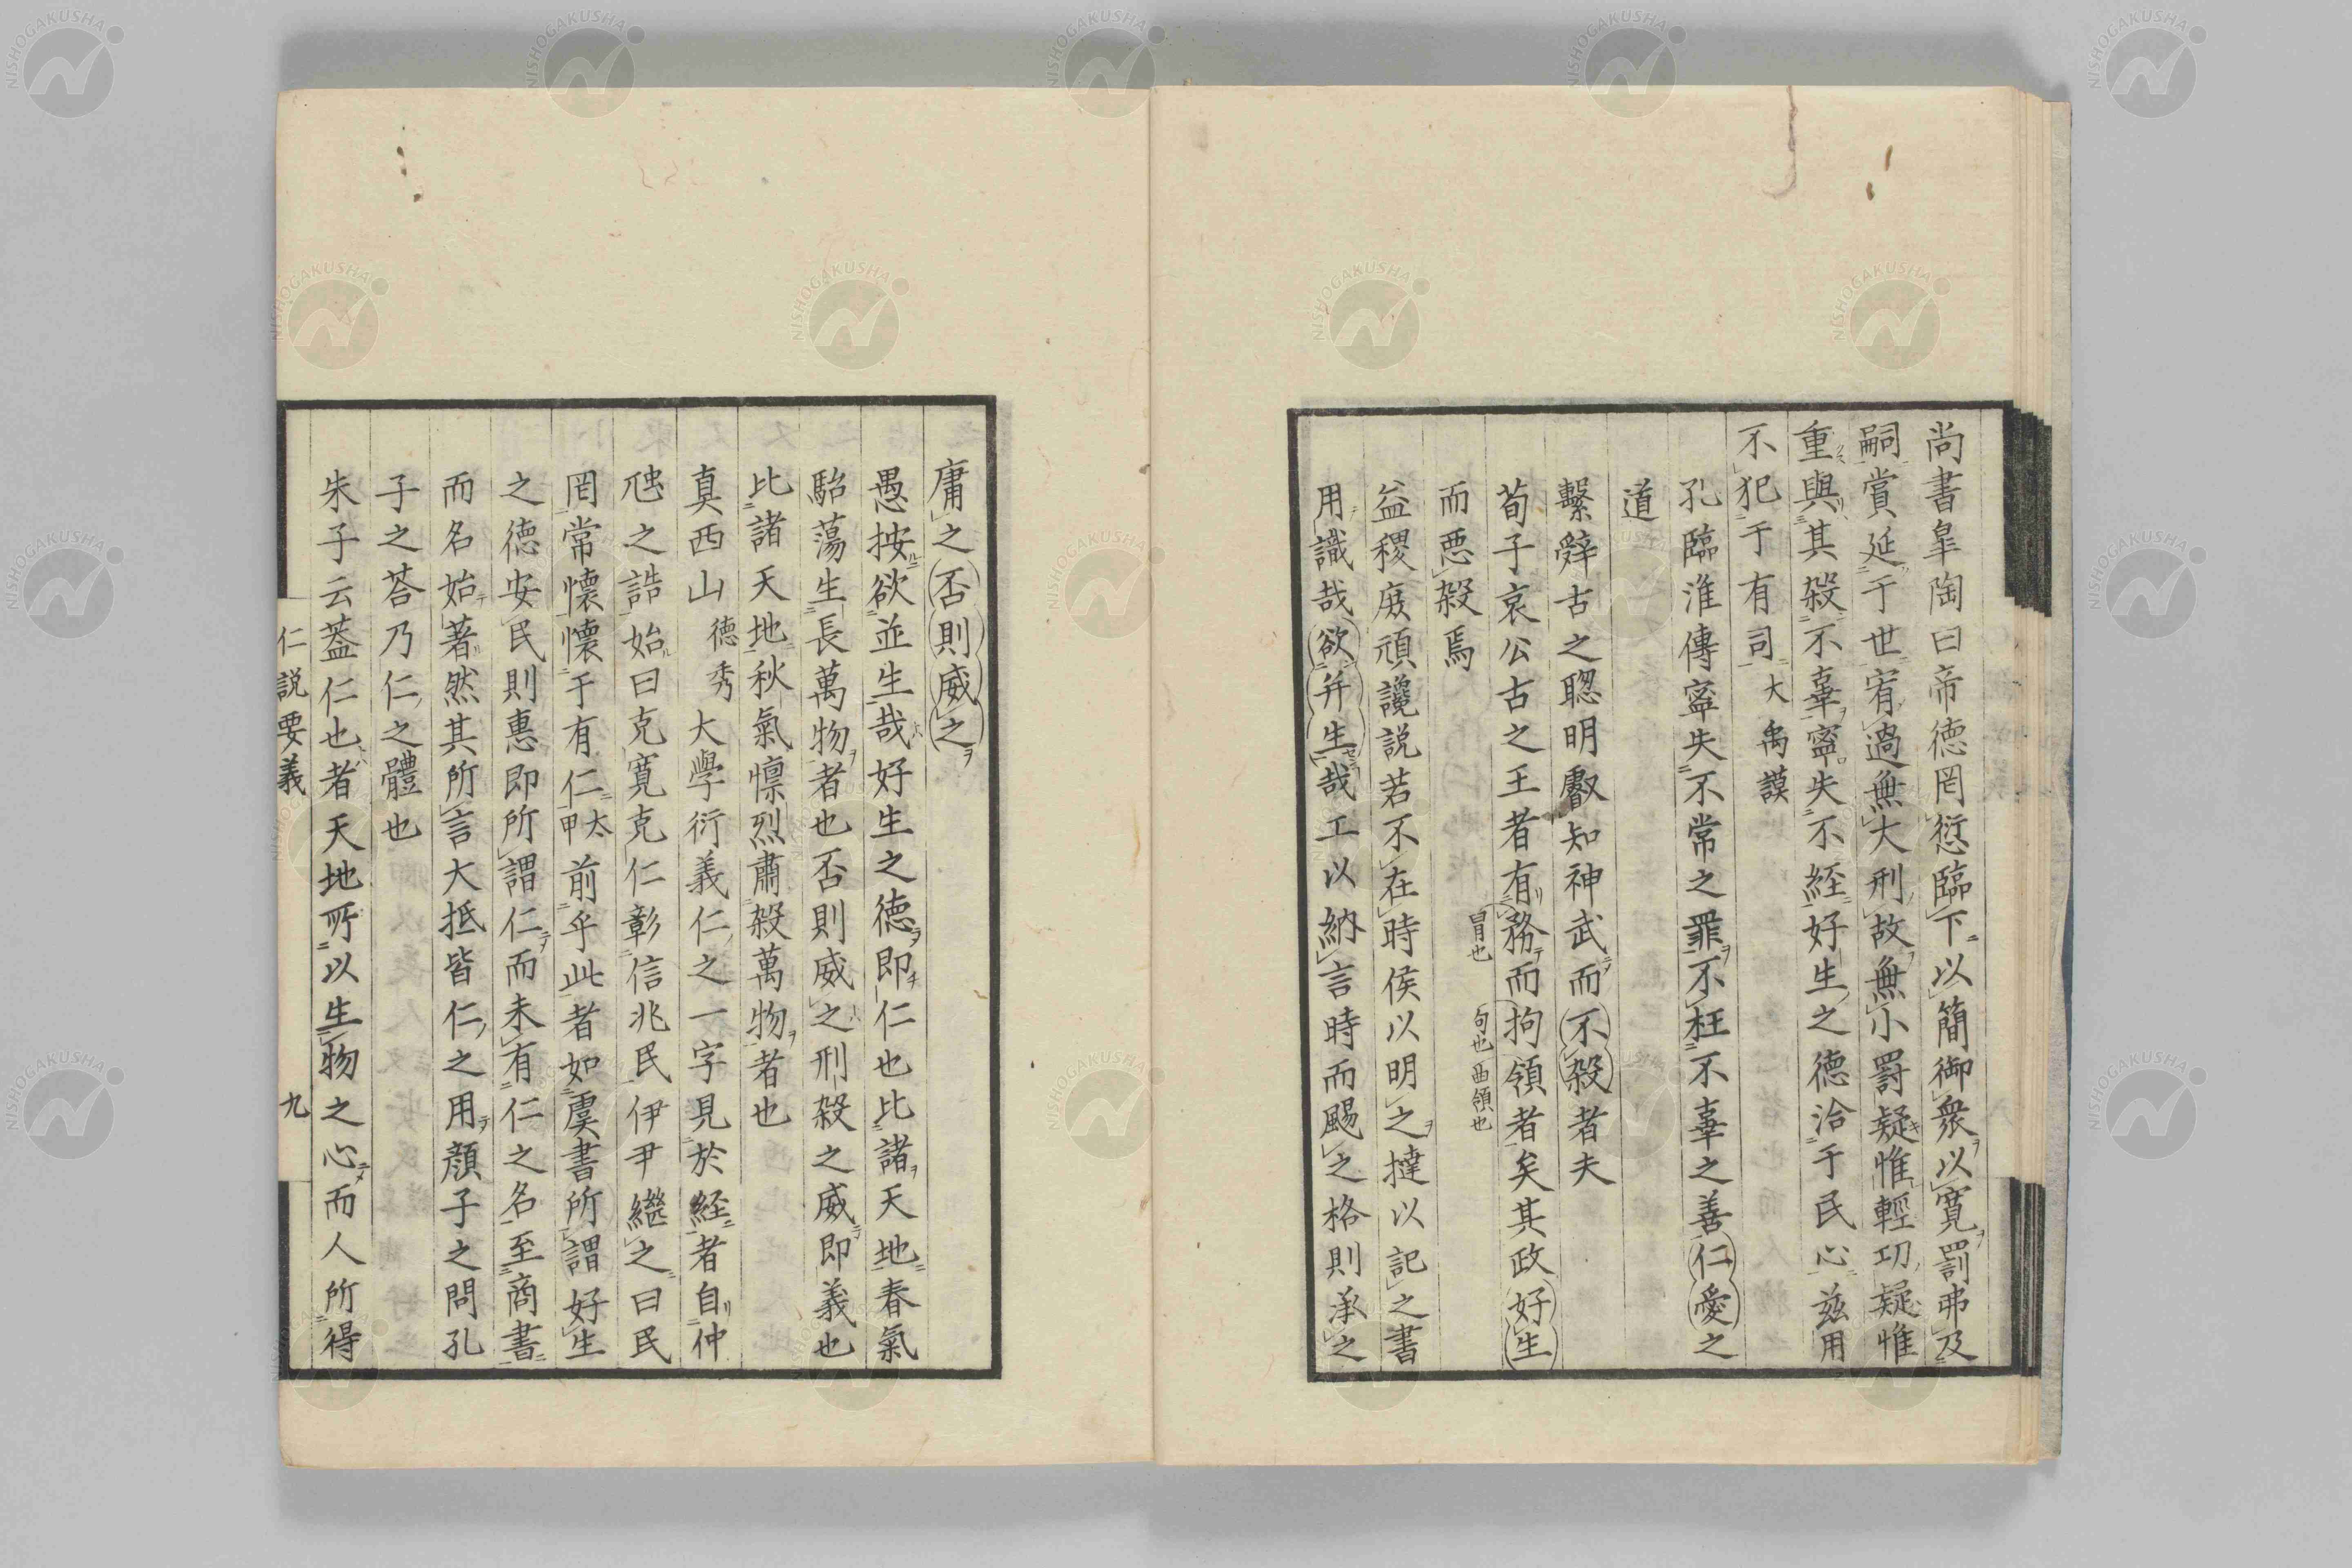 尚書皐陶曰帝德罔愆臨下以簡御衆以寬罰弗及
嗣賞延于世宥過無大刑故無小罪疑惟輕功疑惟
重與其殺不辜寧失不經好生之德洽于民心兹用
不犯于有司大禹謨
孔臨淮傳寧失不常之罪不枉不辜之善仁愛之
道
繫辭古之聰明叡知神武而不殺者夫
荀子哀公古之王者有務而拘領者矣其政好生
冒也 句也 曲領也
而惡殺焉
益稷庶頑讒說若不在時侯以明之撻以記之書
用識哉欲并生哉工以納言時而颺之格則承之
庸之否則威之
愚按欲並生哉好生之德即仁也比諸天地春氣
駘蕩生長萬物者也否則威之刑殺之威即義也
比諸天地秋氣懍烈肅殺萬物者也
真西山德秀大學衍義仁之一字見於經者自仲
虺之誥始曰克寬克仁彰信兆民伊尹繼之曰民
罔常懷懷于有仁太甲前乎此者如虞書所謂好生
之德安民則惠即所謂仁而未有仁之名至商書
而名始著然其所言大抵皆仁之用顏子之問孔
子之荅乃仁之體也
朱子云蓋仁也者天地所以生物之心而人所得
仁説要義 九
NISHOGAKUSHA